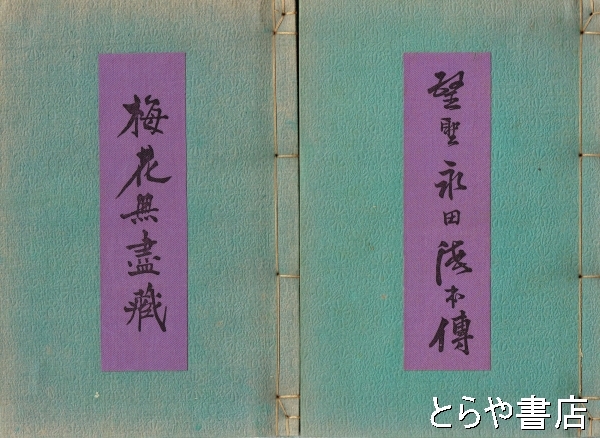 梅花無盡藏
望聖永田德本傳
とらや書店